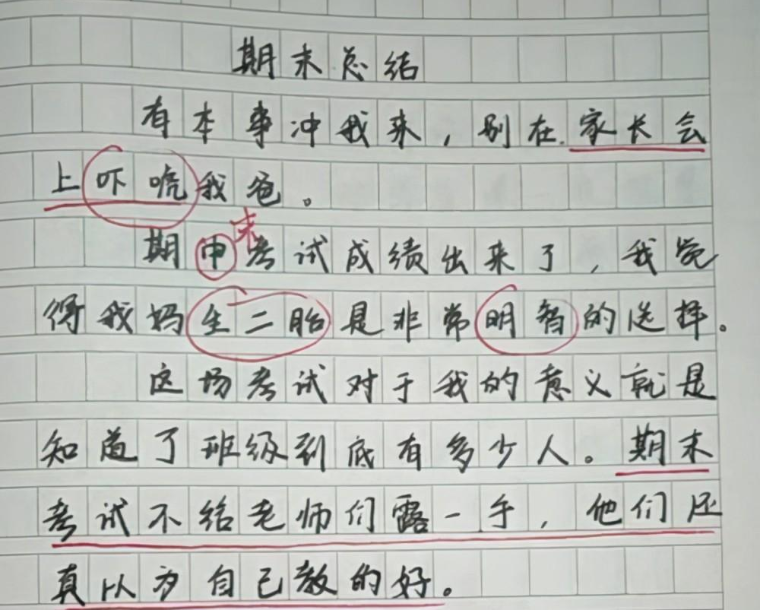 期末总结
有本事冲我来，别在家长会
上吓唬我爸。
末
期中考试成绩出来了，我觉
得我妈生二胎是非常明智的选择。
这场考试对于我的意义就是
知道了班级到底有多少人。期末
考试不给老师们露一手，他们还
真以为自己教的好。